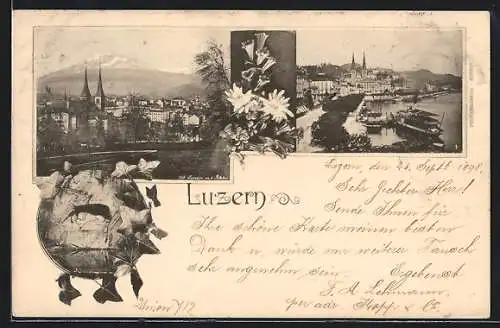 Luzern
Luzern, den 23. Sept. 1898.
Sehr geehrter Herr!
Sende Ihnen für
Ihre schöne Karte meinen besten
Dank u. würde mir weiterer Tausch
sehr angenehm sein. Ergebenst
F. A. Lehmann,
per adr. & Co.